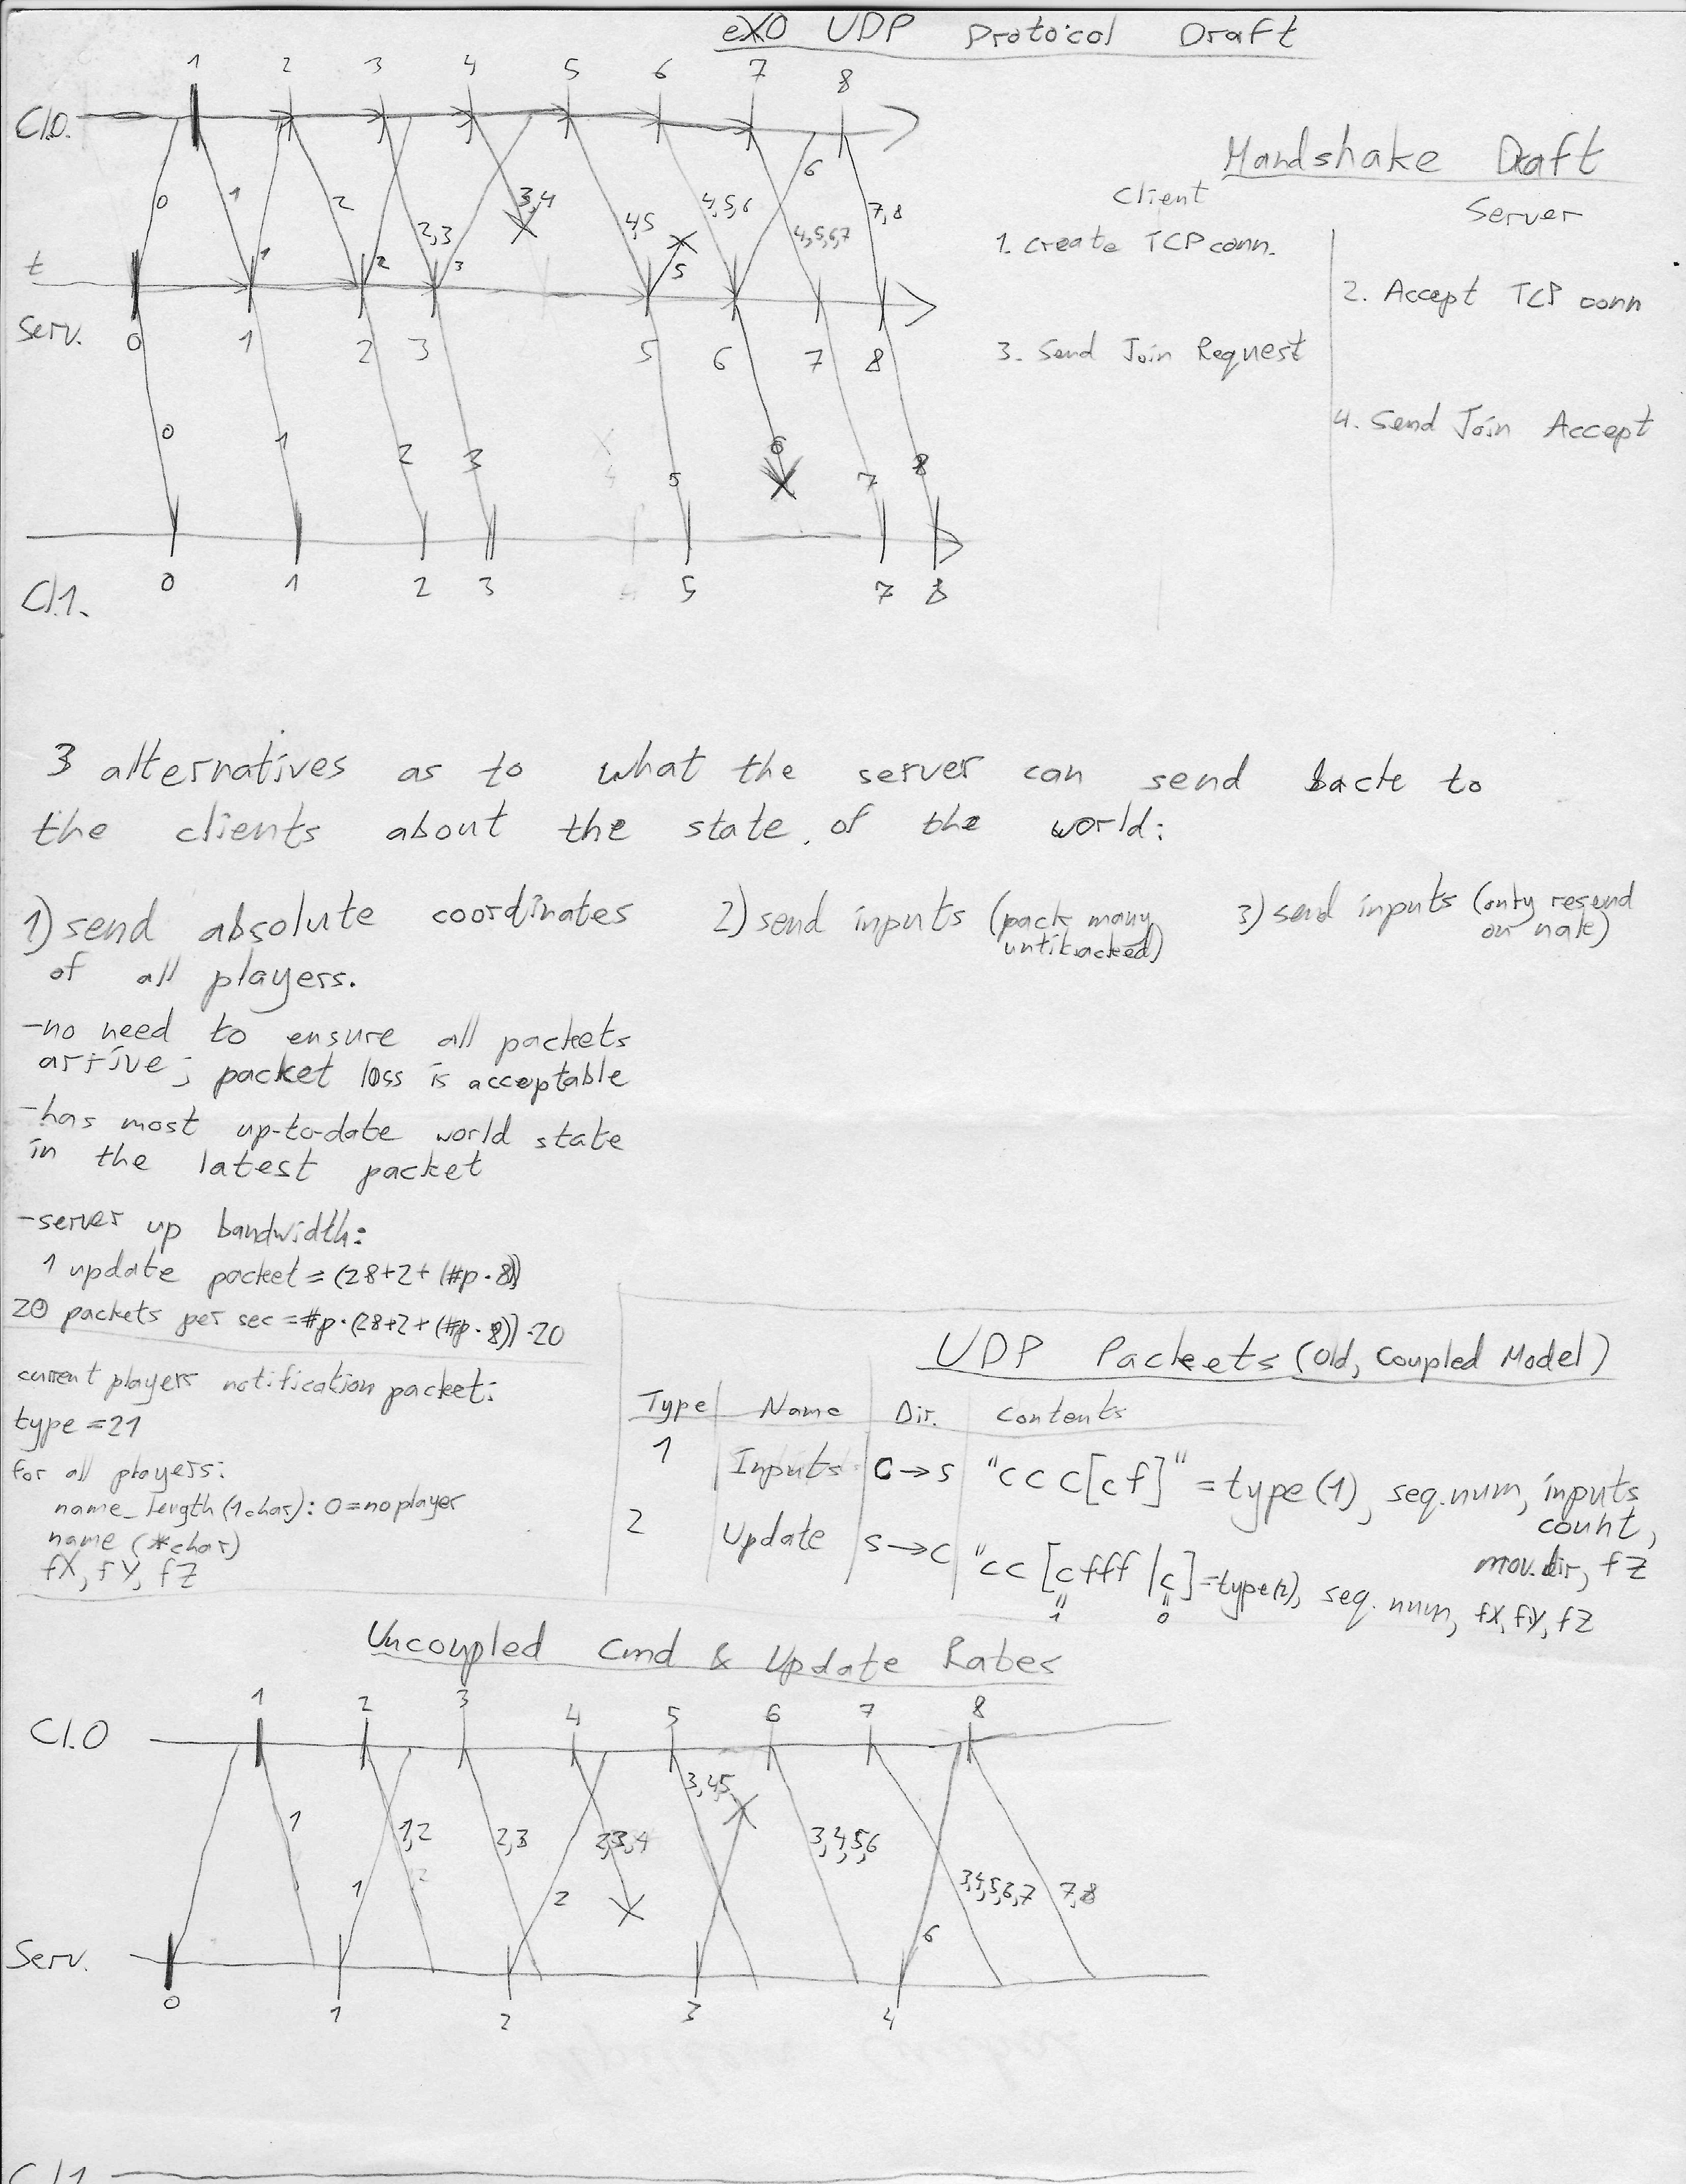 eXO UDP Protocol Draft
1 2 3 4 5 6 7 8
Cl.0.
0 1 2 2,3 3,4 4,5 4,5,6 4,5,6,7 6 7,8
t
1 2 3 5
Serv.
0 1 2 3 5 6 7 8
0 1 2 3 5 6 7 8
Cl.1.
0 1 2 3 5 7 8
Handshake Draft
Client
Server
1. Create TCP conn.
2. Accept TCP conn
3. Send Join Request
4. Send Join Accept
3 alternatives as to what the server can send back to
the clients about the state of the world:
1) send absolute coordinates
of all players.
-no need to ensure all packets
arrive; packet loss is acceptable
-has most up-to-date world state
in the latest packet
-server up bandwidth:
1 update packet = (28+2+(#p·8))
20 packets per sec = #p·(28+2+(#p·8))·20
2) send inputs (pack many
3) send inputs (only resend
on nak)
current players notification packet:
type = 21
for all players:
name_length (1 char): 0 = no player
name (*char)
fX, fY, fZ
UDP Packets (Old, Coupled Model)
Type Name Dir. Contents
1 Inputs C→S "ccc[cf]" = type(1), seq.num, inputs
count,
mov.dir, fZ
2 Update S→C "cc[cfff|c] = type(2), seq. num, fX, fY, fZ
" "
1 0
Uncoupled Cmd & Update Rates
1 2 3 4 5 6 7 8
Cl.0
1 1,2 2,3 2,3,4 3,4,5 3,4,5,6 3,4,5,6,7 7,8
1 2 6
Serv.
0 1 2 3 4